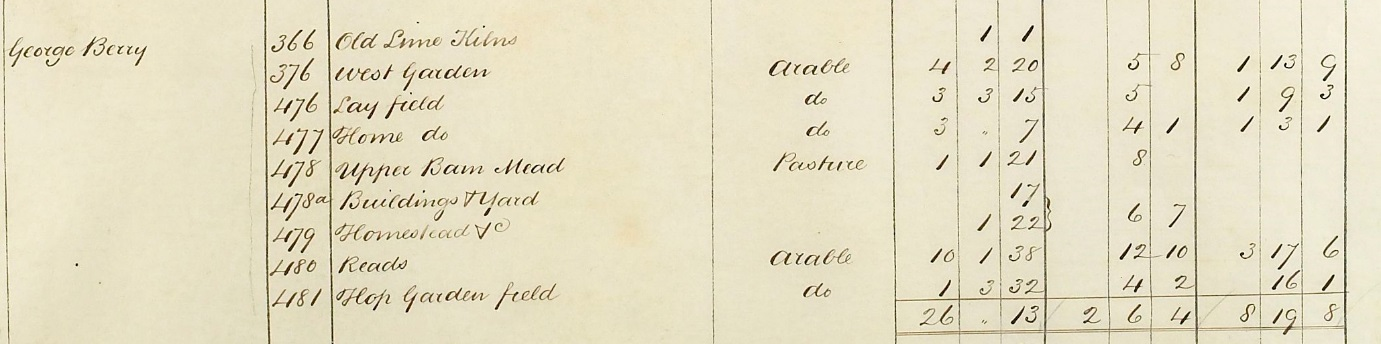 George Berry 366 Old Lime Kilns 1 1
376 West Garden Arable 4 2 20 5 8 1 13 9
476 Lay field do 3 3 15 5 1 9 3
477 Home do do 3 " 7 4 1 1 3 1
478 Upper Barn Mead Pasture 1 1 21 8
478a Buildings & Yard 17
479 Homestead &c 1 22 } 6 7
480 Reads Arable 10 1 38 12 10 3 17 6
481 Hop Garden field do 1 3 32 4 2 16 1
26 " 13 2 6 4 8 19 8